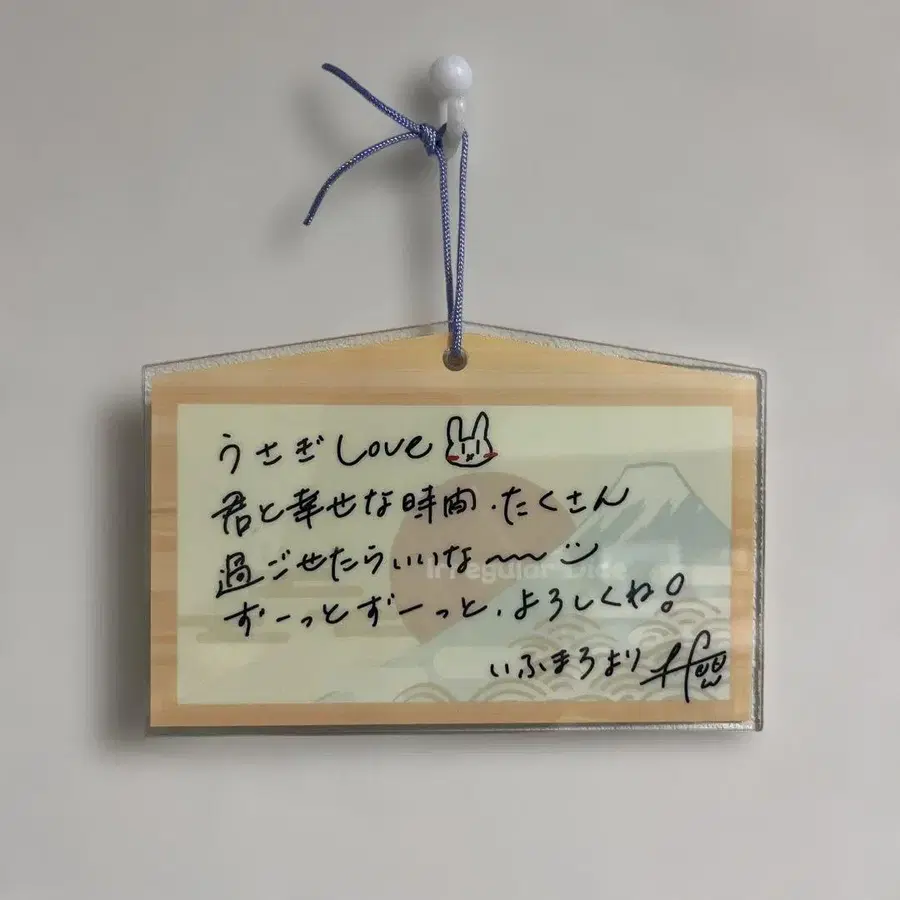 うさぎLove
君と幸せな時間、たくさん
過ごせたらいいな〜〜
ずーっとずーっと、よろしくね!
いふまろより
Irregular Dice